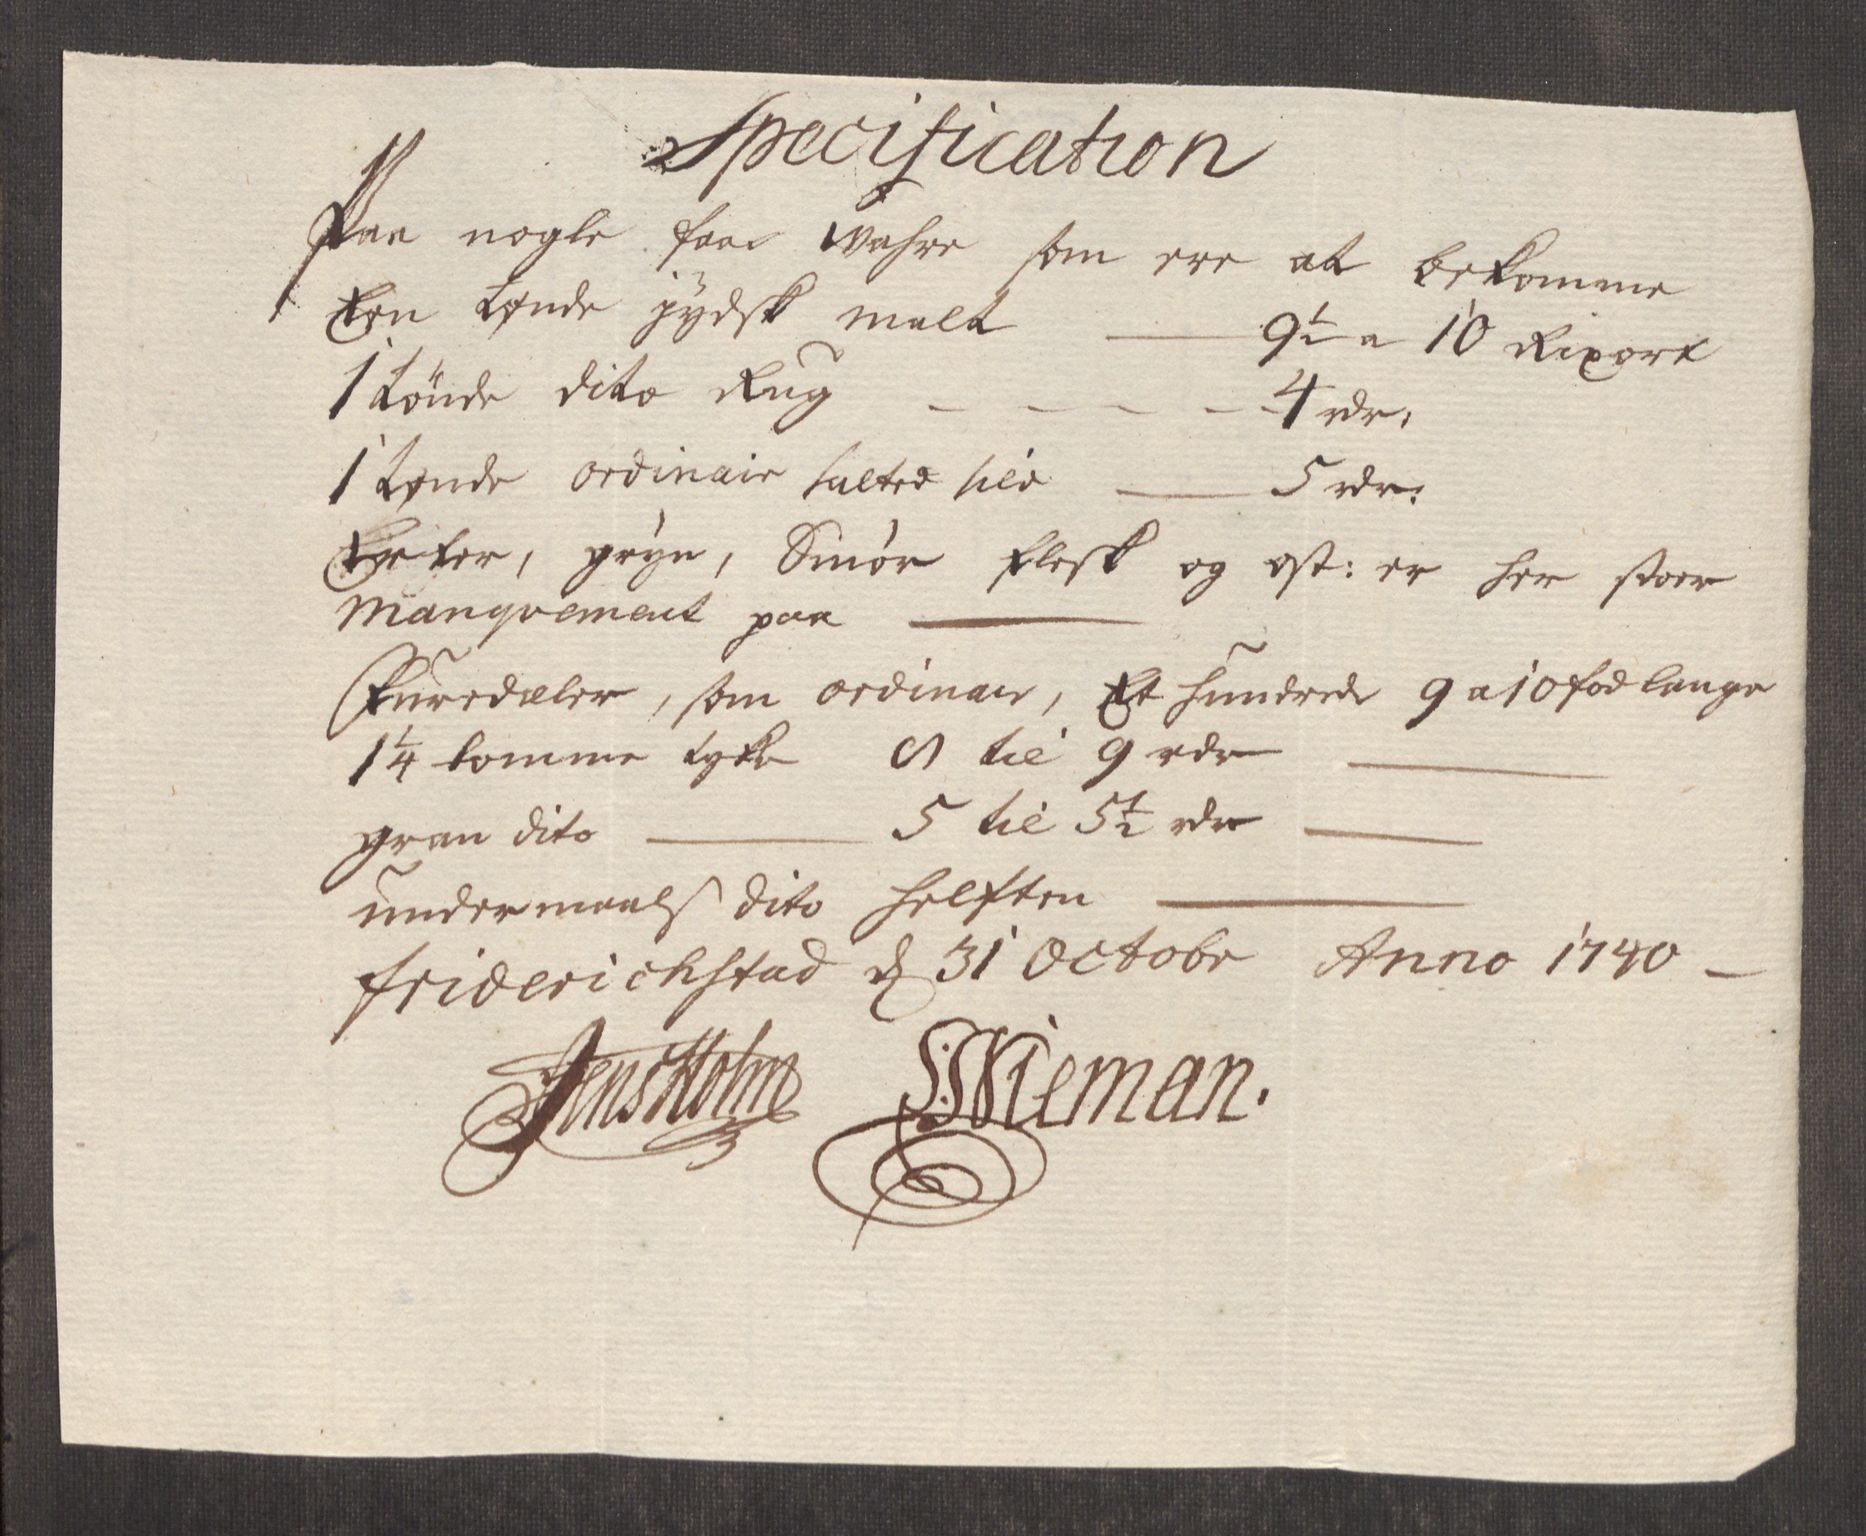 Specification
Paa nogle faae Wahre som ere at bekomme
Een tønde jydsk malt — 9½ a 10 Rixort
1 tönde dito Rug - - - - - 4 rdr:
1 tønde ordinair salted sild — 5 rdr:
Erter, gryn, Smör flesk og ost: er her stoer
Manqvement paa —
Furedæler, som ordinair, Et hundrede 9 a 10 fod lange
1¼ tomme tykke til 9 rdr —
gran dito — 5 til 5½ rdr —
undermaals dito helften —
Friderichstad d 31 Octobr Anno 1740 —
Jens Holm S: Nieman.